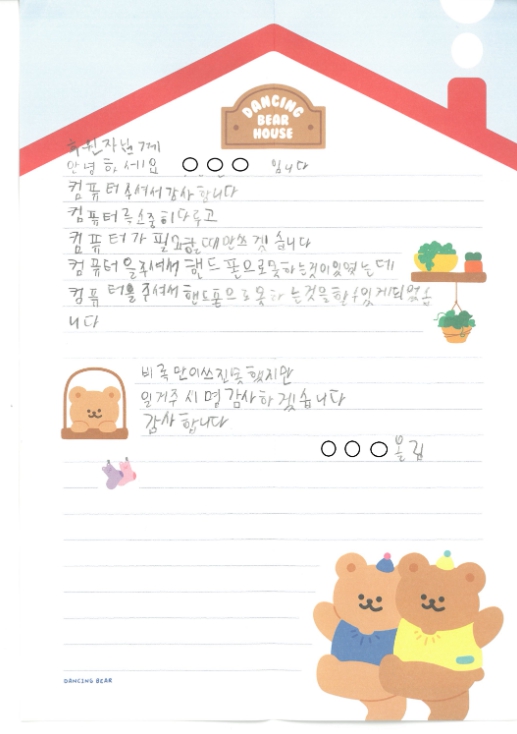 DANCING
BEAR
HOUSE
후원자님께
안녕하세요 ○○○ 입니다
컴퓨터 주셔서 감사합니다
컴퓨터를 소중히 다루고
컴퓨터가 필요할 때만 쓰겠습니다
컴퓨터을 주셔서 핸드폰으로 못하는것이 있었는데
컴퓨터를 주셔서 핸드폰으로 못하는것을 할수있게되었습
니다
비록 많이쓰진못했지만
읽거주시면 감사하겠습니다
감사합니다
○○○ 올림
DANCING BEAR